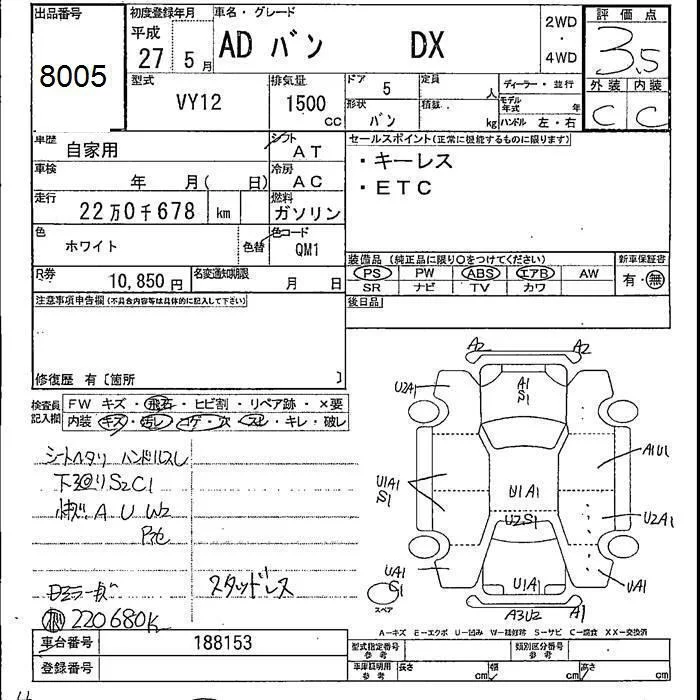 出品番号
8005
初度登録年月
平成
27 5月
車名・グレード
AD バン DX
2WD
・
4WD
評価点
3.5
外装 内装
C C
型式
VY12
排気量
1500
CC
ドア 5
形状
バン
定員 人
積載 kg
ディーラー・並行
モデル年式 年
ハンドル 左・右
車歴 自家用
シフト
AT
車検 年 月( 日)
冷房
AC
走行 22万0千678 km
燃料
ガソリン
色 ホワイト 色替
色コード
QM1
R券 10,850円
名変通知期限 月 日
セールスポイント(正常に機能するものに限ります)
・キーレス
・ETC
装備品 (純正品に限り○をつけてください)
PS PW ABS エアB AW
SR ナビ TV カワ
新車保証書
有・無
後日品
注意事項申告欄(不具合内容等は具体的に記入して下さい)
修復歴 有〔箇所 〕
検査員記入欄
FW キズ・飛石・ヒビ割・リペア跡・×要
内装 キズ・汚レ・コゲ・穴・スレ・キレ・破レ
シートヘタリ ハンドルスレ
下回りS2C1
A U W2
スタッドレス
220680K
A2 A2
U2A1
A1
S1
A1U1
U1A1
S1
U1A1
U2S1
U2A1
UA1
S1
U1A1
UA1
スペア
A3U2 A1
A―キズ E―エクボ U―凹み W―補修跡 S―サビ C―腐食 XX―交換済
車台番号 188153
登録番号
型式指定番号
参考
類別区分番号
参考
車庫証明用
参考
長さ cm 幅 cm 高さ cm